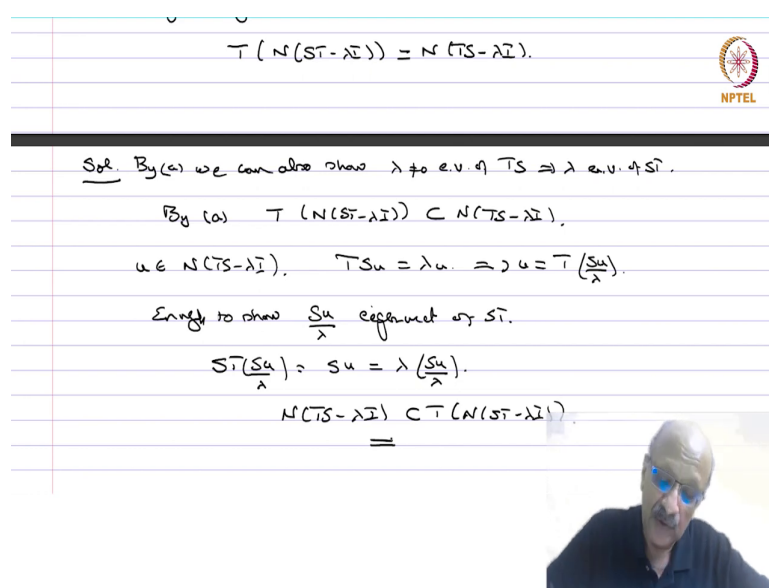 T ( N(ST-λI)) = N(TS-λI).
NPTEL
Sol. By (a) we can also show λ≠0 e.v. of TS ⇒ λ e.v. of ST.
By (a) T (N(ST-λI)) ⊂ N(TS-λI).
u ∈ N(TS-λI). TSu = λu. ⇒ u = T (Su/λ).
Enough to show Su/λ eigenvect of ST.
ST(Su/λ) = Su = λ (Su/λ).
N(TS-λI) ⊂ T(N(ST-λI)).